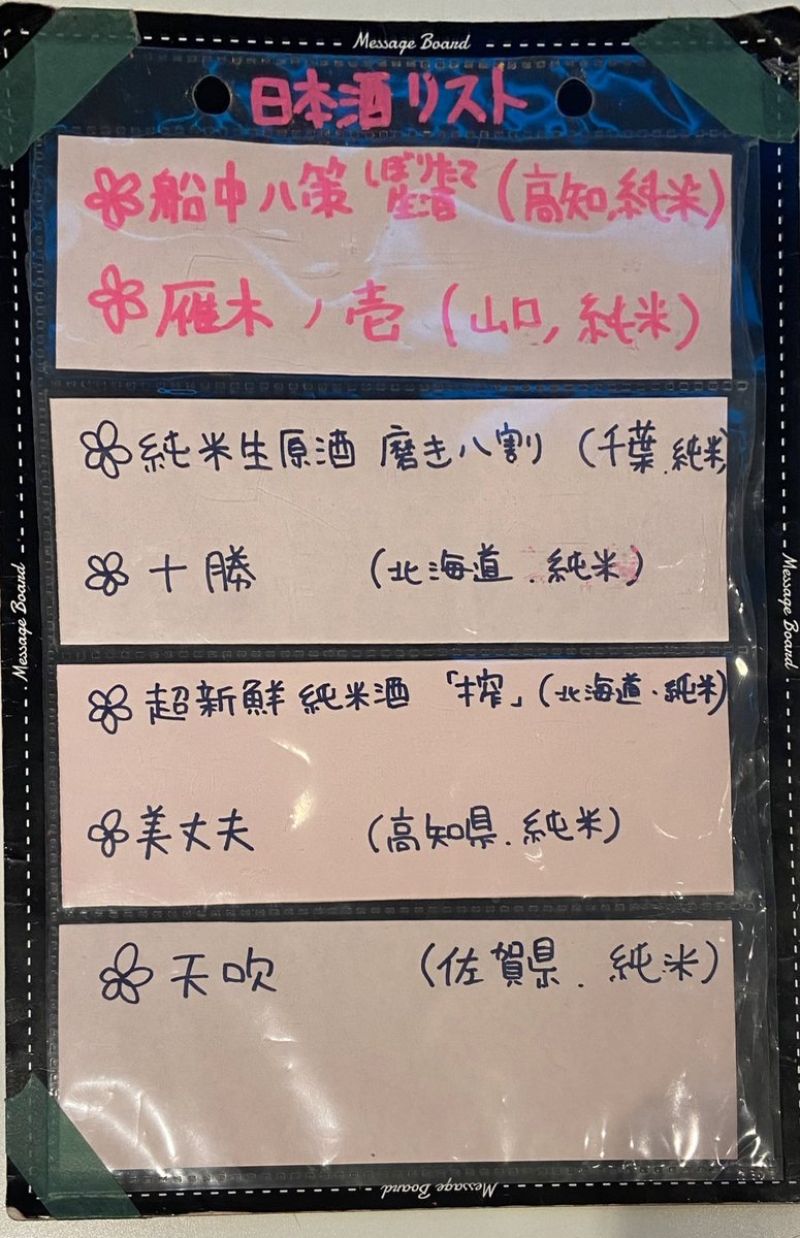 Message Board
日本酒リスト
船中八策 しぼりたて生酒 (高知,純米)
雁木ノ壱 (山口,純米)
純米生原酒 磨き八割 (千葉.純米)
十勝 (北海道.純米)
超新鮮純米酒 「搾」(北海道・純米)
美丈夫 (高知県.純米)
天吹 (佐賀県.純米)
Message Board
Message Board
Message Board